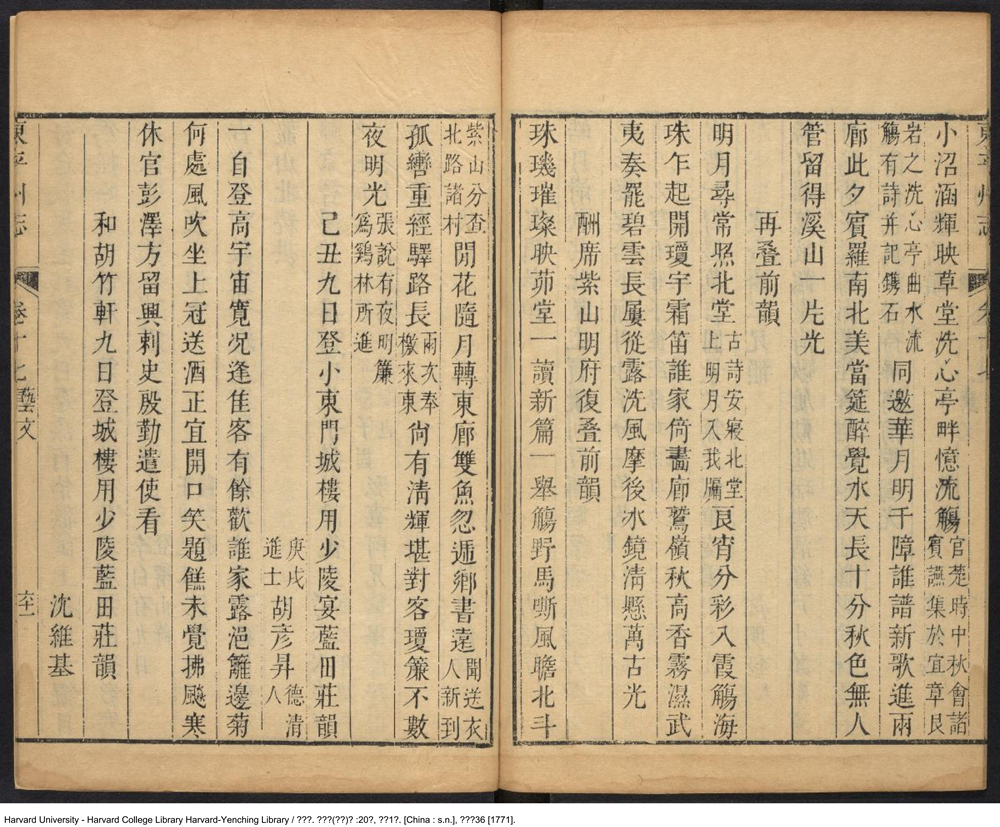 小沼涵輝映草堂洗心亭畔憶流觴官楚時中秋會諸賓讌集於宜章艮
岩之洗心亭曲水流觴有詩并記鐫石同邀華月明千障誰譜新歌進兩
廊此夕賓羅南北美當筵醉覺水天長十分秋色無人
管留得溪山一片光
再叠前韻
明月尋常照北堂古詩安寢北堂上明月入我牖良宵分彩入霞觴海
珠乍起開瓊宇霜笛誰家倚畵廊鷲嶺秋高香霧濕武
夷奏罷碧雲長屢從露洗風摩後水鏡清懸萬古光
酬席紫山明府復叠前韻
珠璣璀璨映茆堂一讀新篇一舉觴野馬嘶風瞻北斗
東平州志
卷十七藝文
紫山分查北路諸村閒花隨月轉東廊雙魚忽遞鄉書遠聞送衣人新到
孤轡重經驛路長兩次奉檄來東尙有清輝堪對客瓊簾不數
夜明光張說有夜明簾爲鷄林所進
己丑九日登小東門城樓用少陵宴藍田莊韻
庚戌進士胡彦昇德清人
一自登高宇宙寬况逢佳客有餘歡誰家露浥籬邊菊
何處風吹坐上冠送酒正宜開口笑題餻未覺拂飈寒
休官彭澤方留興刺史殷勤遣使看
和胡竹軒九日登城樓用少陵藍田莊韻
沈維基